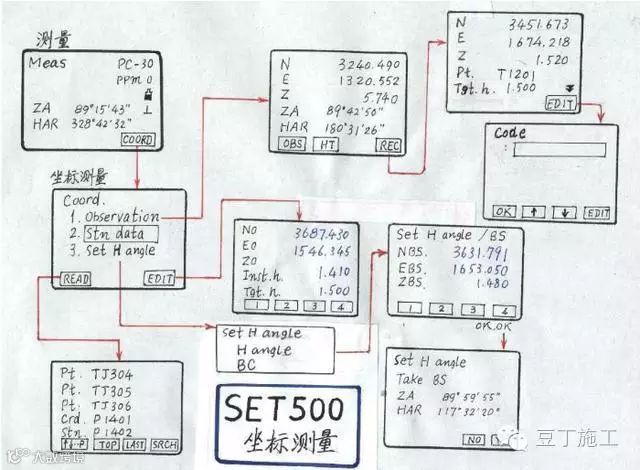 测量
Meas PC-30
PPM 0
ZA 89°15'43" ⊥
HAR 328°42'32"
COORD
N 3240.490
E 1320.552
Z 5.740
ZA 89°42'50"
HAR 180°31'26"
OBS HT REC
N 3451.673
E 1674.218
Z 1.520
Pt. T1201
Tgt.h. 1.500
EDIT
Code
:
OK ↑ ↓ EDIT
坐标测量
Coord.
1. Observation
2. Stn data
3. Set H angle
READ EDIT
N0 3687.430
E0 1546.345
Z0
Inst.h. 1.410
Tgt.h. 1.500
1 2 3 4
Set H angle /BS
NBS. 3631.791
EBS. 1653.050
ZBS. 1.480
1 2 3 4
OK.OK
Set H angle
H angle
BC
Set H angle
Take BS
ZA 89°59'55"
HAR 117°32'20"
NO
Pt. TJ304
Pt. TJ305
Pt. TJ306
Crd. P1401
Stn. P1402
↑↓··P TOP LAST SRCH
SET500
坐标测量
豆丁施工